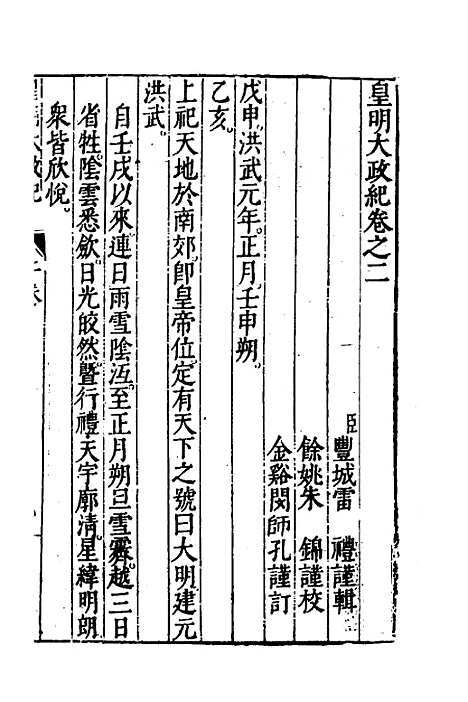 皇明大政紀卷之二
臣豐城雷　禮謹輯
餘姚朱　錦謹校
金谿閔師孔謹訂
戊申。洪武元年。正月。壬申朔。
乙亥。
上祀天地於南郊。卽皇帝位。定有天下之號曰大明。建元
洪武。
自壬戌以來。連日雨雪陰沍。至正月朔旦雪霽。越三日
省牲。陰雲悉斂。日光皎然。曁行禮。天宇廓清。星緯明朗
衆皆欣悅。